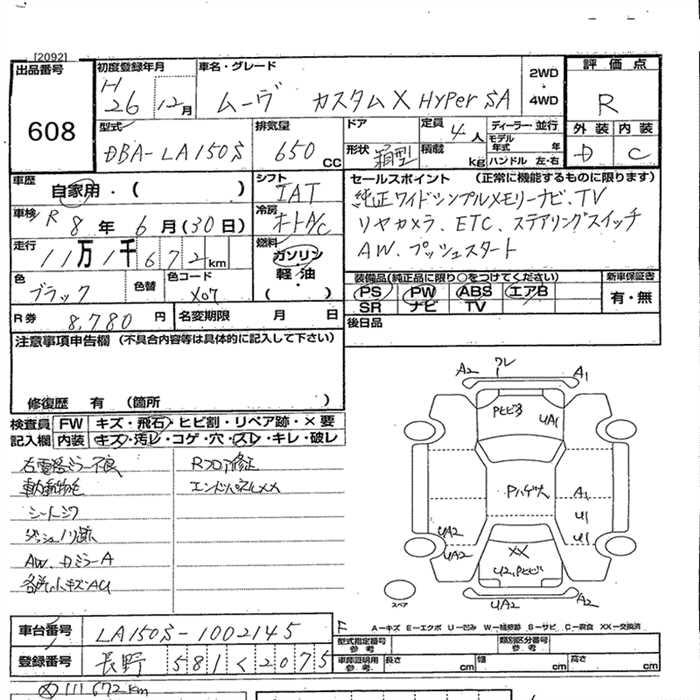 [2092]
出品番号
608
初度登録年月
H 26 12月
車名・グレード
ムーヴ カスタムX Hyper SA
2WD
・
4WD
評価点
R
外装 内装
D C
型式
DBA-LA150S
排気量
650 cc
ドア
形状 箱型
定員 4人
積載 kg
ディーラー・並行
モデル年式 年
ハンドル 左・右
車歴
自家用・( )
シフト
IAT
車検 R 8年 6月(30日)
冷房
オートA/C
走行
11万1千672km
燃料
ガソリン
・
軽油
・
( )
色
ブラック
色替
色コード
X07
R券 8,780円
名変期限 月 日
セールスポイント (正常に機能するものに限ります)
純正ワイドシンプルメモリーナビ、TV
リヤカメラ、ETC、ステアリングスイッチ
AW、プッシュスタート
装備品(純正品に限り○をつけてください)
PS PW ABS エアB
SR ナビ TV
新車保証書
有・無
後日品
注意事項申告欄(不具合内容等は具体的に記入して下さい)
修復歴 有 (箇所 )
検査員記入欄
FW キズ・飛石・ヒビ割・リペア跡・×要
内装 キズ・汚レ・コゲ・穴・スレ・キレ・破レ
右電格ミラー不良 Rフロア修正
動物毛 エンドパネルXX
シートシワ
AW、DミラーA
各所小キズAU
A2 ワレ A1
Pヒビ3 UA1
Pハゲ大 A1
U1
UA2
UA2
XX
U2,Pヒビ
UA2 A1
スペア
F
A-キズ E-エクボ U-凹み W-補修跡 S-サビ C-腐食 XX-交換済
車台番号 LA150S-1002145
登録番号 長野 581 く 2075
型式指定番号 参考
類別区分番号 参考
車庫証明用 参考 長さ cm 幅 cm 高さ cm
111,672km